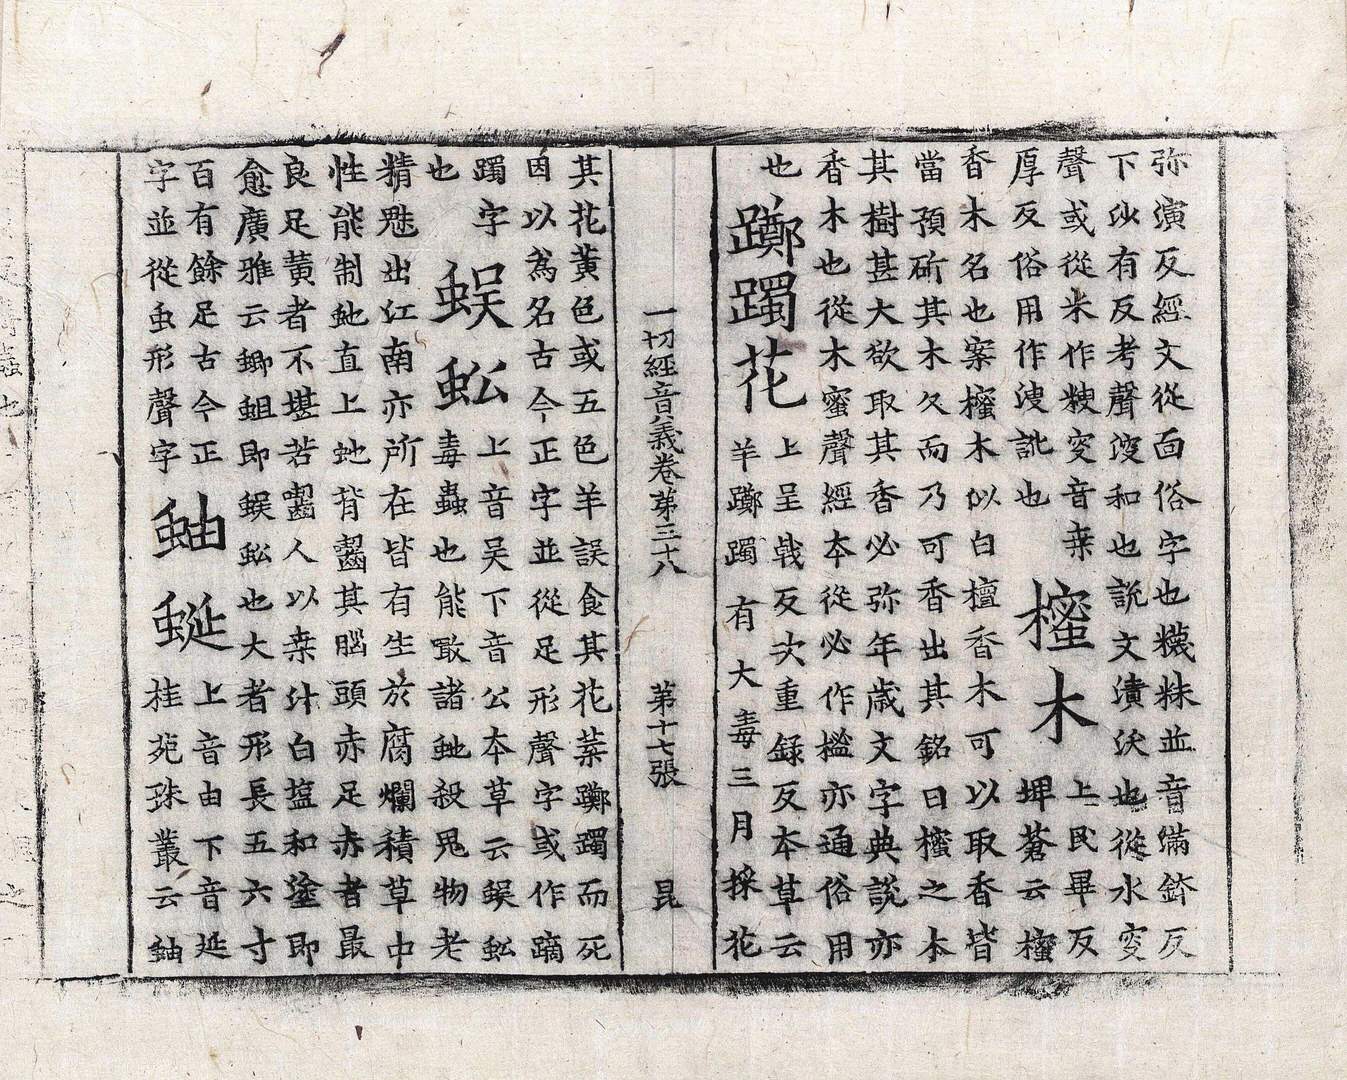 弥演反經文從面俗字也䊳粖並音滿鉼反
下沙有反考聲溲和也說文漬沃也從水叜
聲或從米作䊬叜音桒
櫁木
上民畢反
埤蒼云櫁
厚反俗用作溲訛也
香木名也案櫁木似白檀香木可以取香皆
當預斫其木久而乃可香出其銘曰櫁之木
其樹甚大欲取其香必弥年歲文字典說亦
香木也從木蜜聲經本從必作榓亦通俗用
也
躑躅花
上呈戟反次重録反本草云
羊躑躅有大毒三月採花
一切經音義卷第三十八 第十七張 昆
其花黄色或五色羊誤食其花葉躑躅而死
因以為名古今正字並從足形聲字或作蹢
躅字
蜈蚣
上音吴下音公本草云蜈蚣
毒蟲也能噉諸虵殺鬼物老
也
精魅出江南亦所在皆有生於腐爛積草中
性能制虵直上虵背齧其腦頭赤足赤者最
良足黄者不堪若齧人以桒汁白塩和塗即
愈廣雅云蝍蛆即蜈蚣也大者形長五六寸
百有餘足古今正
字並從虫形聲字
蚰蜒
上音由下音延
桂苑珠叢云蚰